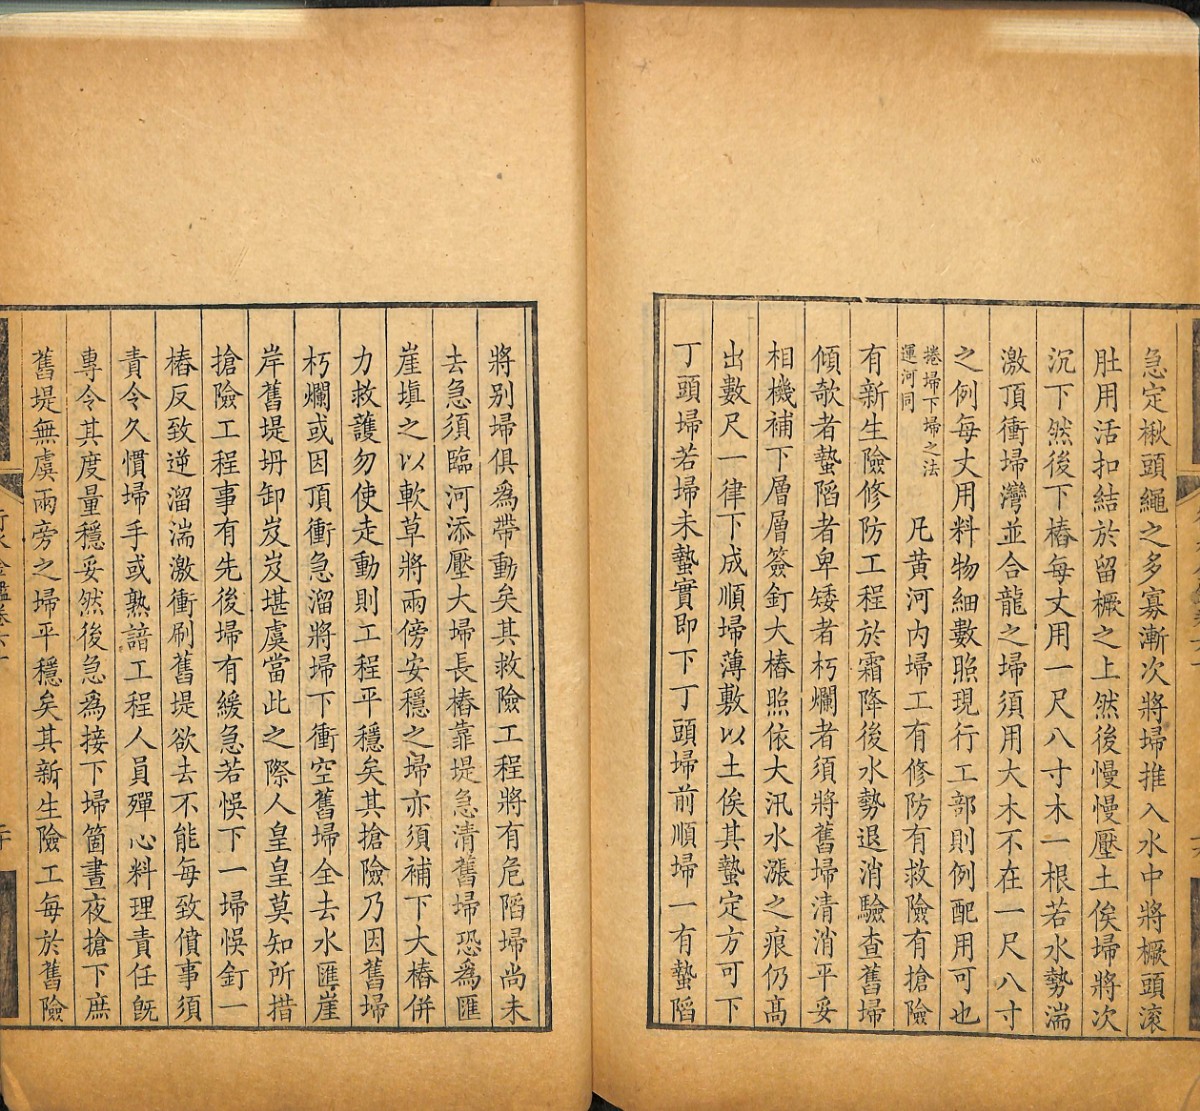 急定楸頭繩之多寡漸次將埽推入水中將橛頭滚
肚用活扣結於留橛之上然後慢慢壓土俟埽將次
沉下然後下樁每丈用一尺八寸木一根若水勢湍
激頂衝埽灣並合龍之埽須用大木不在一尺八寸
之例每丈用料物細數照現行工部則例配用可也
捲埽下埽之法
運河同
凡黄河内埽工有修防有救險有搶險
有新生險修防工程於霜降後水勢退消驗查舊埽
傾欹者蟄䧟者卑矮者朽爛者須將舊埽清消平妥
相機補下層層簽釘大樁照依大汛水漲之痕仍髙
出數尺一律下成順埽薄敷以土俟其蟄定方可下
丁頭埽若埽未蟄實即下丁頭埽前順埽一有蟄䧟
將别埽俱為帶動矣其救險工程將有危䧟埽尚未
去急須臨河添壓大埽長樁靠堤急清舊埽恐為匯
崖塡之以軟草將兩傍安穩之埽亦須補下大樁併
力救護勿使走動則工程平穩矣其搶險乃因舊埽
朽爛或因頂衝急溜將埽下衝空舊埽全去水匯崖
岸舊堤坍卸岌岌堪虞當此之際人皇皇莫知所措
搶險工程事有先後埽有緩急若悞下一埽悞釘一
樁反致逆溜湍激衝刷舊堤欲去不能每致僨事須
責令久慣埽手或熟諳工程人員殫心料理責任旣
專令其度量穩妥然後急為接下埽箇晝夜搶下庶
舊堤無虞兩旁之埽平穩矣其新生險工每於舊險